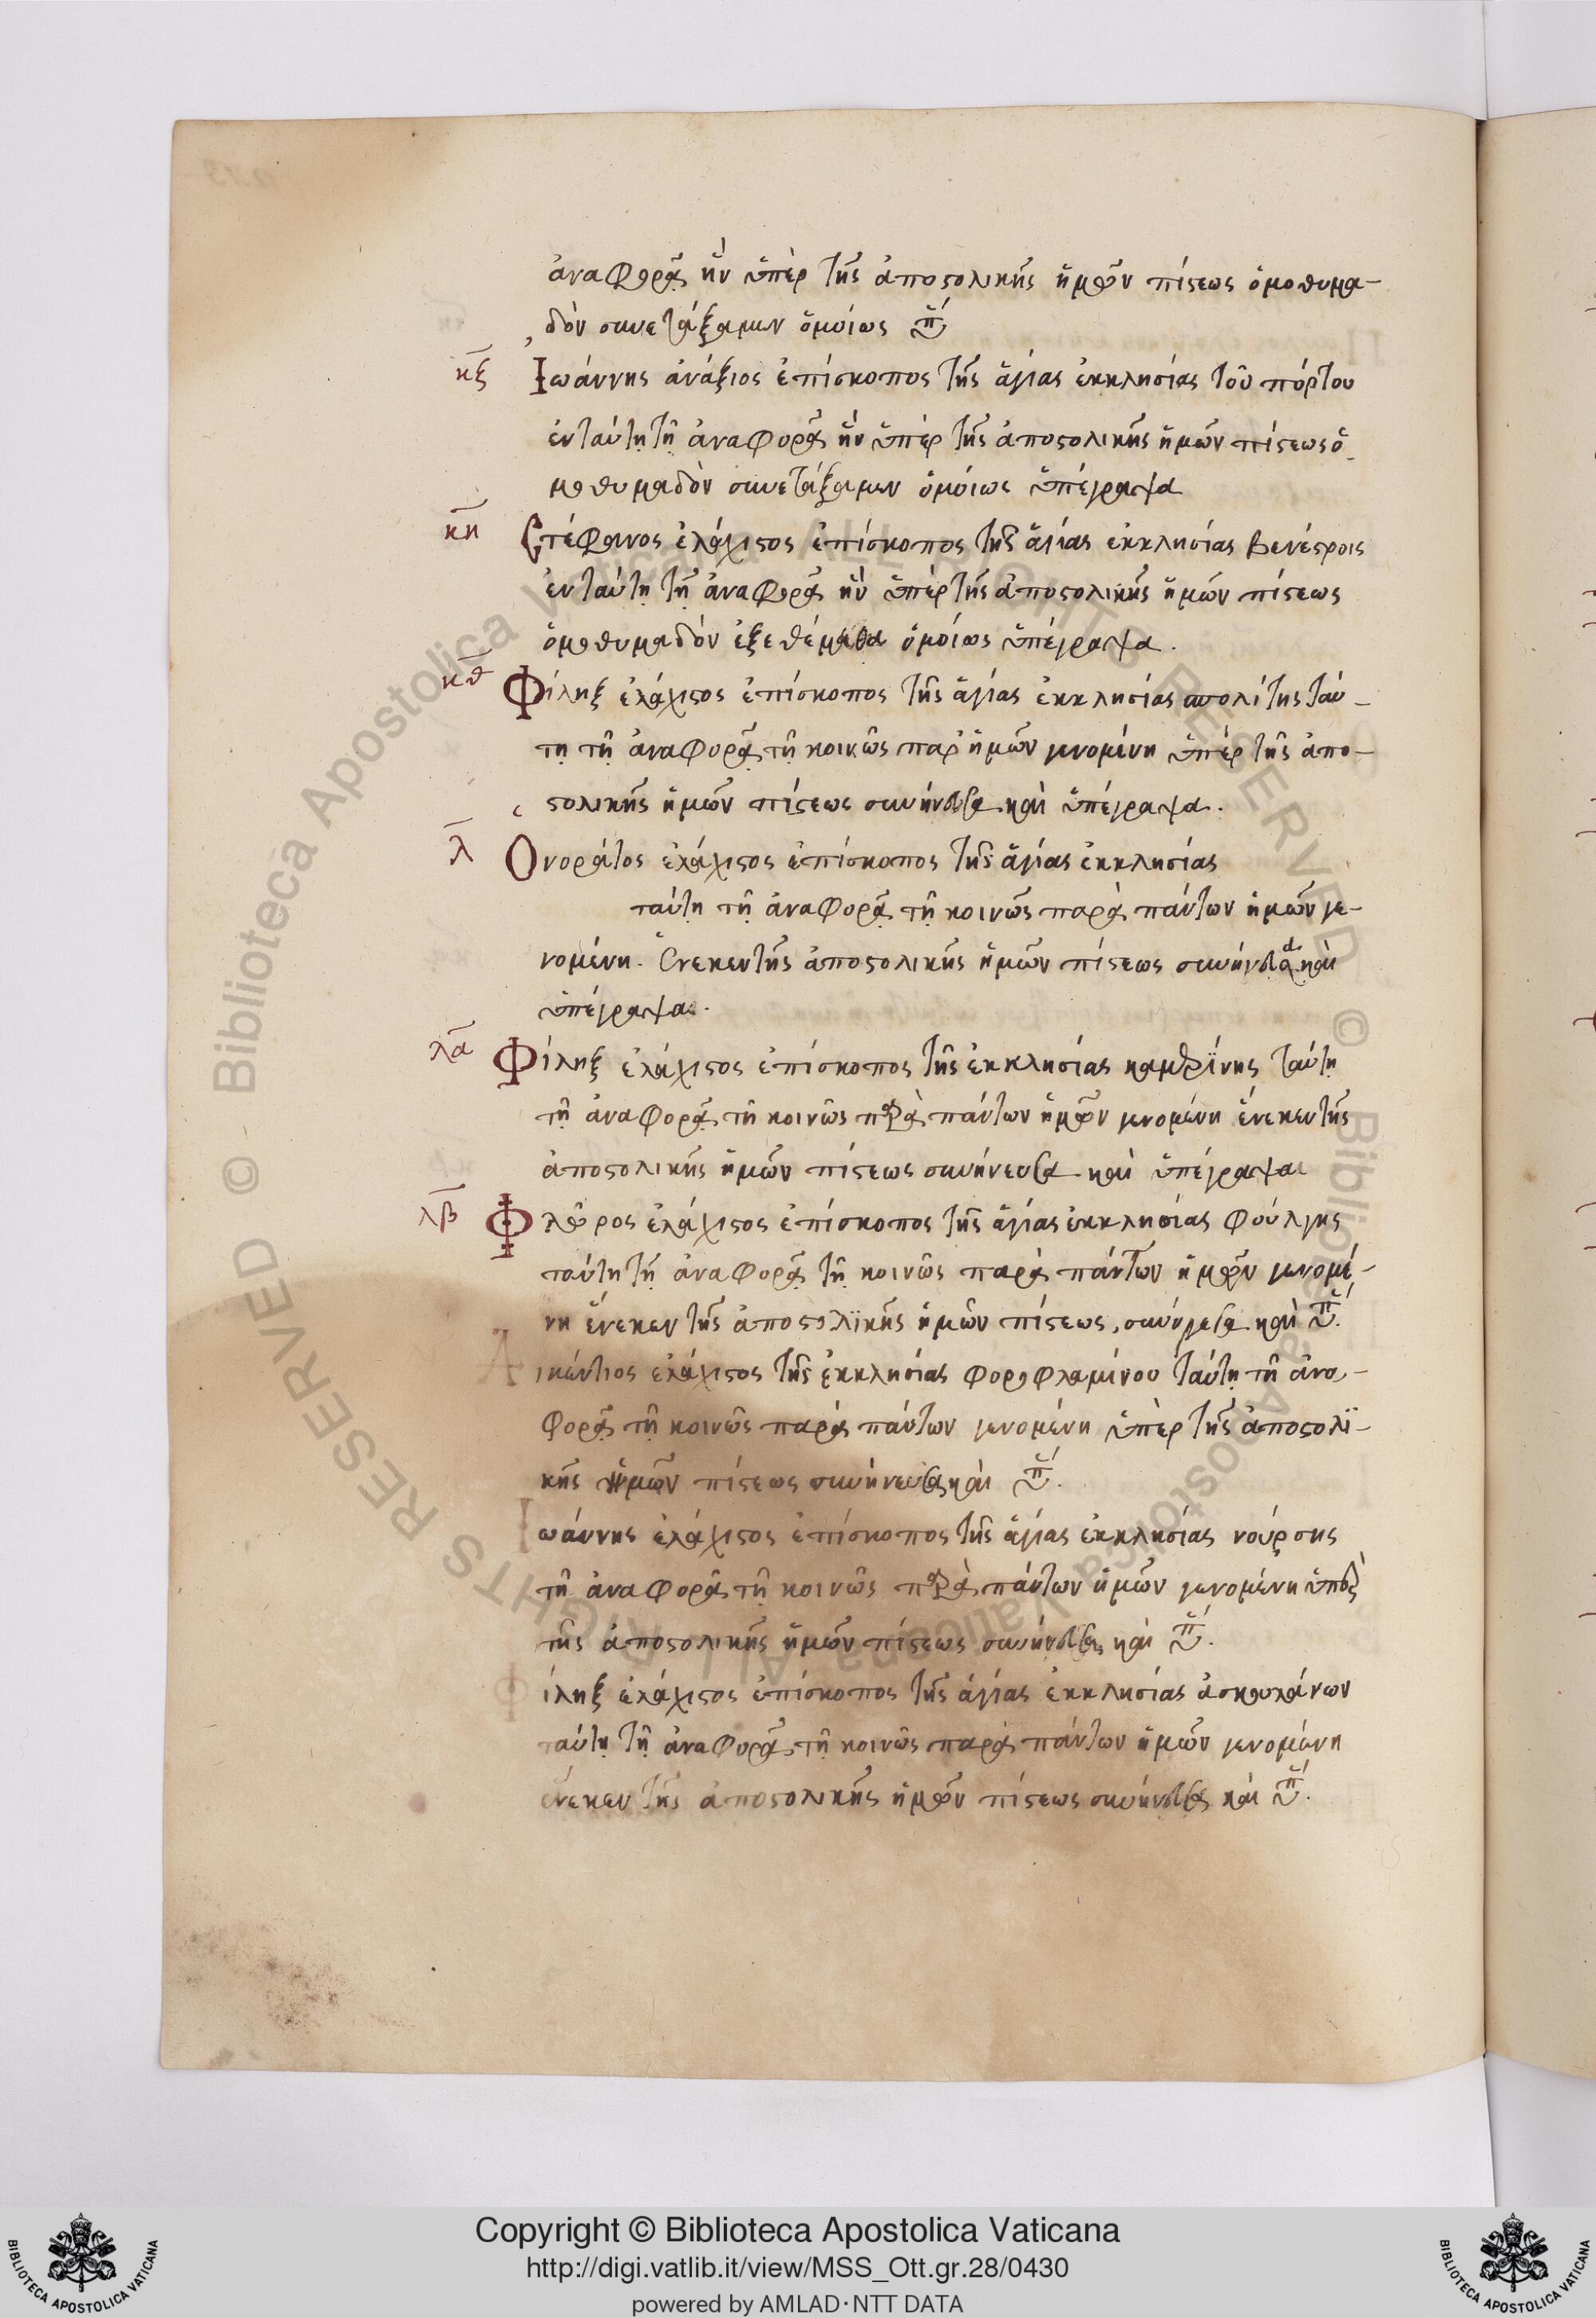 ἀναφορᾷ ἣν ὑπὲρ τῆς ἀποστολικῆς ἡμῶν πίστεως ὁμοθυμα-
δὸν συνετάξαμεν ὁμοίως ὑπ́
κξ Ἰωάννης ἀνάξιος ἐπίσκοπος τῆς ἁγίας ἐκκλησίας τοῦ πόρτου
ἐν ταύτῃ τῇ ἀναφορᾷ ἣν ὑπὲρ τῆς ἀποστολικῆς ἡμῶν πίστεως ὁ-
μοθυμαδὸν συνετάξαμεν ὁμοίως ὑπέγραψα
κη Στέφανος ἐλάχιστος ἐπίσκοπος τῆς ἁγίας ἐκκλησίας βενέστροις
ἐν ταύτῃ τῇ ἀναφορᾷ ἣν ὑπὲρ τῆς ἀποστολικῆς ἡμῶν πίστεως
ὁμοθυμαδὸν ἐξεθέμεθα ὁμοίως ὑπέγραψα.
κθ Φίληξ ἐλάχιστος ἐπίσκοπος τῆς ἁγίας ἐκκλησίας πολίτης ταύ-
τῃ τῇ ἀναφορᾷ τῇ κοινῶς παρ' ἡμῶν γενομένη ὑπὲρ τῆς ἀπο-
στολικῆς ἡμῶν πίστεως συνήνεσα καὶ ὑπέγραψα.
λ Ὁνοράτος ἐλάχιστος ἐπίσκοπος τῆς ἁγίας ἐκκλησίας
ταύτη τῇ ἀναφορᾷ τῇ κοινῶς παρὰ πάντων ἡμῶν γε-
νομένη. ἕνεκεν τῆς ἀποστολικῆς ἡμῶν πίστεως συνήνεσα καὶ
ὑπέγραψα.
λα Φίληξ ἐλάχιστος ἐπίσκοπος τῆς ἐκκλησίας καμερίνης ταύτῃ
τῇ ἀναφορᾷ τῇ κοινῶς παρὰ πάντων ἡμῶν γενομένη ἕνεκεν τῆς
ἀποστολικῆς ἡμῶν πίστεως συνήνεσα καὶ ὑπέγραψα
λβ Φλῶρος ἐλάχιστος ἐπίσκοπος τῆς ἁγίας ἐκκλησίας φούλγης
ταύτῃ τῇ ἀναφορᾷ τῇ κοινῶς παρὰ πάντων ἡμῶν γενομέ-
νη ἕνεκεν τῆς ἀποστολϊκῆς ἡμῶν πίστεως, συνήνεσα καὶ ὑπ́.
Δικέντιος ἐλάχιστος τῆς ἐκκλησίας φοροφλαμίνου ταύτῃ τῇ ἀνα-
φορᾷ τῇ κοινῶς παρὰ πάντων γενομένη ὑπὲρ τῆς ἀποστολϊ-
κῆς ἡμῶν πίστεως συνήνεσα καὶ ὑπ́.
Ἰωάννης ἐλάχιστος ἐπίσκοπος τῆς ἁγίας ἐκκλησίας νούρσης
τῇ ἀναφορᾷ τῇ κοινῶς παρὰ πάντων ἡμῶν γενομένη ὑπὲρ
τῆς ἀποστολικῆς ἡμῶν πίστεως συνήνεσα καὶ ὑπ́.
Φίληξ ἐλάχιστος ἐπίσκοπος τῆς ἁγίας ἐκκλησίας ἀσκουλάνων
ταύτῃ τῇ ἀναφορᾷ τῇ κοινῶς παρὰ πάντων ἡμῶν γενομένη
ἕνεκεν τῆς ἀποστολικῆς ἡμῶν πίστεως συνήνεσα καὶ ὑπ́.
Copyright © Biblioteca Apostolica Vaticana
http://digi.vatlib.it/view/MSS_Ott.gr.28/0430
powered by AMLAD·NTT DATA